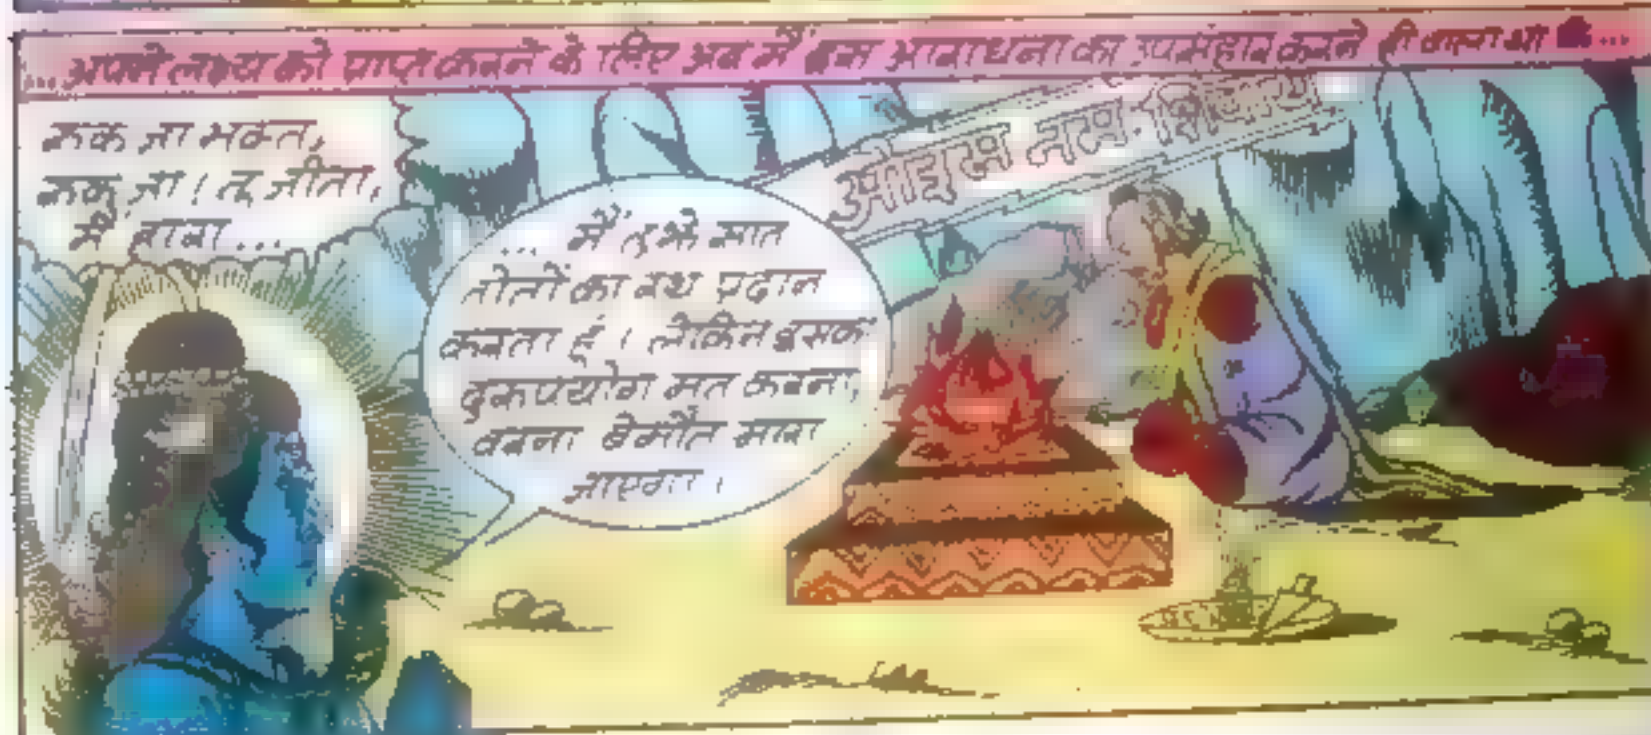 ...अपने लक्ष्य को प्राप्त करने के लिए अब मैं इस आराधना का उपसंहार करने ही वाला था कि...
रूक जा भक्त,
रूक जा! तू जीता,
मैं हारा...
ओइम नमः शिवाय
... मैं तुझे सात
तोतों का रथ प्रदान
करता हूं। लेकिन इसका
दुरूपयोग मत करना,
वरना बेमौत मारा
जाएगा।